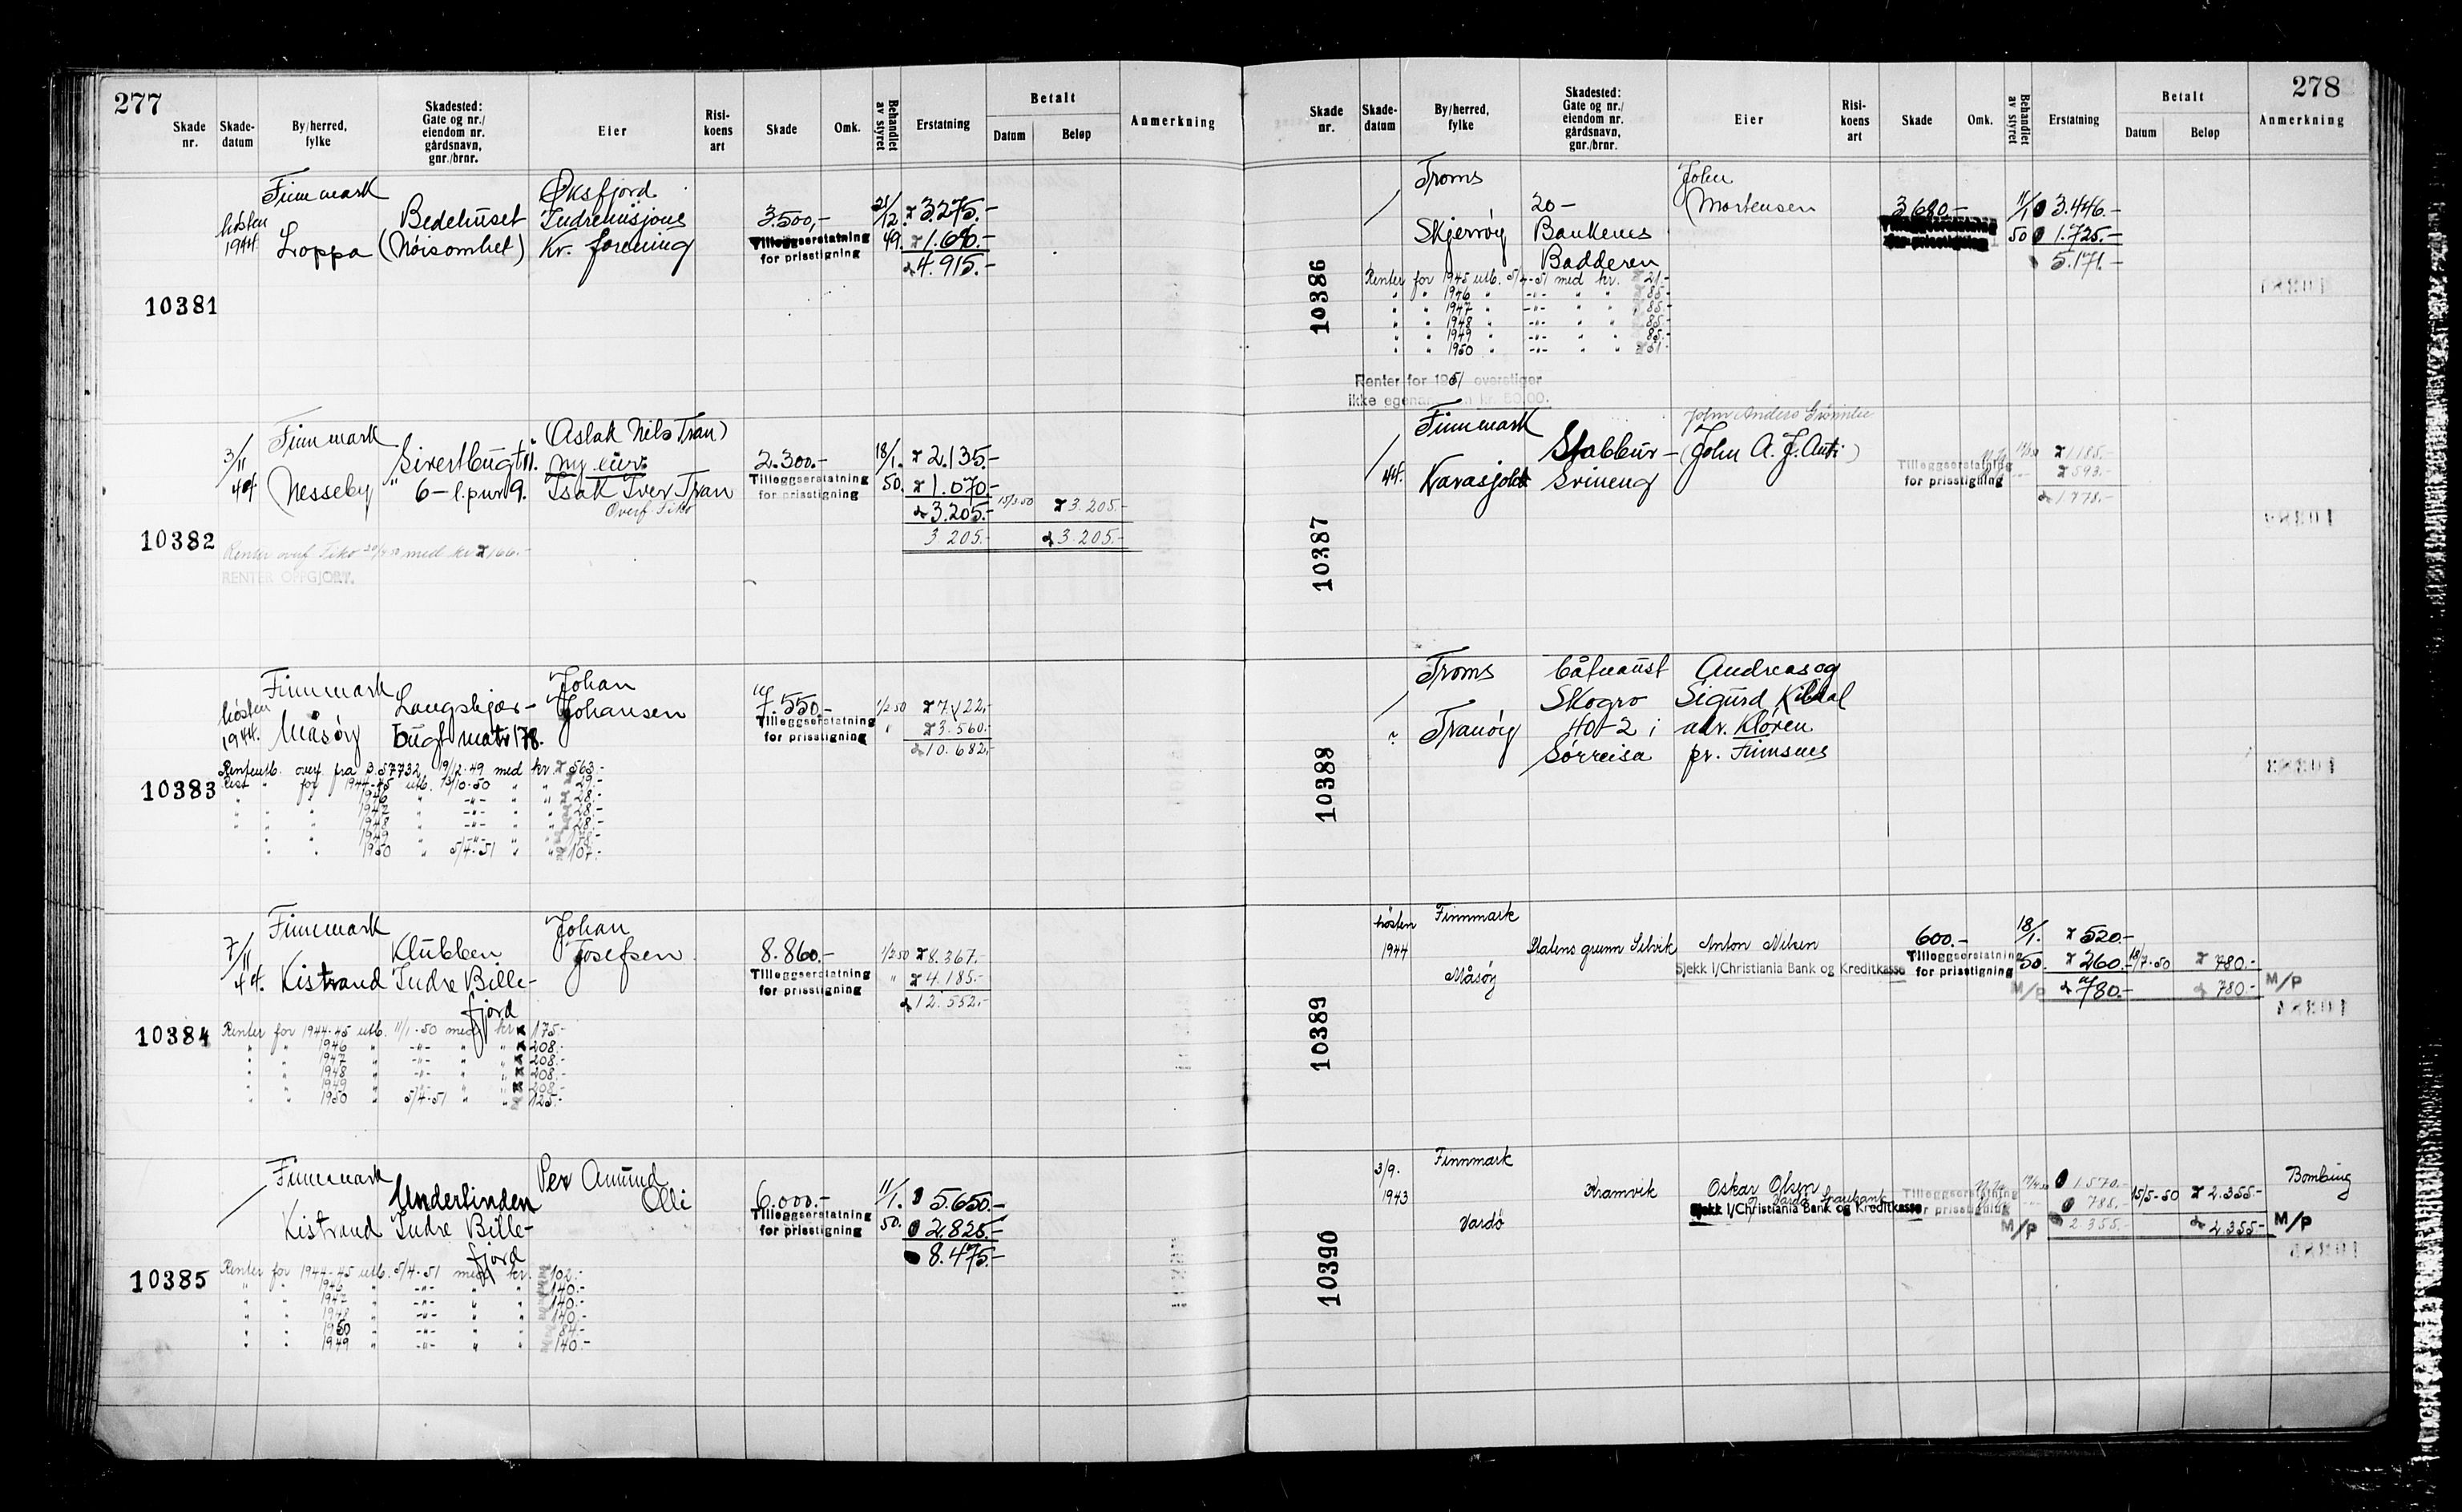 277
Skade nr.
Skade-datum
By/herred, fylke
Skadested: Gate og nr./ eiendom nr. gårdsnavn, gnr./brnr.
Eier
Risi-koens art
Skade
Omk.
Behandlet av styret
Erstatning
Betalt
Datum
Beløp
Anmerkning
10381
Finnmark Øksfjord
høsten Bedehuset Indremisjons 3500,- 21/12. 3.275.-
1944. Loppa (Nøisomhet) Kr. forening Tilleggserstatning 49.
for prisstigning 4.915.-
10382
Finnmark (Aslak Nils Tran)
3/11 Sivertbugt ny eier: 2.300.- 18/1. 2.135.-
44. Nesseby 6-l.pnr 9. Isak Iver Tran Tilleggserstatning 50. 1.070.-
for prisstigning
Overf Fiko 3.205.- 15/3.50 3.205.-
3.205.- 3.205.-
Renter overf Fiko med kr 166.-
RENTER OPPGJORT.
10383
Finnmark Johan
høsten Langskjær- Johansen 7.550.- 1/2 50 7.122,-
1944. Måsøy bugt matr 178. Tilleggserstatning " 3.560.-
for prisstigning 10.682,-
Renteutb. overf. fra B.57732 19/12.49 med kr. 563.-
Rest " for 1944-45 utb. 13/10-50 " " 29.-
" " " 1946 " -"- " " 28.-
" " " 1947 " -"- " " 28.-
" " " 1948 " -"- " " 28.-
" " " 1949 " -"- " "
" " 1950 " 5/4-51 " " 107.-
10384
Finnmark Johan
7/11 Klubben Josefsen 8.860.- 1/2 50 8.367.-
44. Kistrand Indre Bille- Tilleggserstatning " 4.185.-
fjord for prisstigning 12.552,-
Renter for 1944-45 utb. 11/1-50 med kr 175.-
" " 1946 " -"- " " 208.-
" " 1947 " -"- " " 208.-
" " 1948 " -"- " " 208.-
" " 1949 " -"- " " 208.-
" " 1950 " 5/4-51 " " 125.-
10385
Finnmark Per Amund
Underlinden Olli 6.000.- 11/1. 5.650.-
Kistrand Indre Bille- Tilleggserstatning 50. 2.825.-
fjord for prisstigning 8.475.-
Renter for 1944-45 utb. 5/4-51 med kr. 102.-
" " 1946 " -"- " " 140.-
" " 1947 " -"- " " 140.-
" " 1948 " -"- " " 140.-
" " 1950 " -"- " " 84.-
" " 1949 " -"- " " 140.-
278
Skade nr.
Skade-datum
By/herred, fylke
Skadested: Gate og nr./ eiendom nr. gårdsnavn, gnr./brnr.
Eier
Risi-koens art
Skade
Omk.
Behandlet av styret
Erstatning
Betalt
Datum
Beløp
Anmerkning
10386
Troms John
20- Mortensen 3680.- 11/1 3.446.-
Skjervøy Bankenes 50 1.725.-
Badderen 5.171.-
Renter for 1945 utb. 5/4-51 med kr. 21.-
" " 1946 " -"- " " 85.-
" " 1947 " -"- " " 85.-
" " 1948 " -"- " " 85.-
" " 1949 " -"- " " 85.-
" " 1950 " -"- " " 51.-
Renter for 1951 overstiger
ikke egenandelen kr. 50.00.
10387
Finnmark John Anders
Stabbur- (John A. J. Anti) 1185.-
44. Karasjokk Svineng Tilleggserstatning 593.-
for prisstigning 1.778.-
10388
Troms båtnaust Andreas og
Skogro Sigurd Kildal
? Tranøy 40-2 i adr. Kløven
Sørreisa pr. Finnsnes
10389
høsten Finnmark
1944 Statens grunn Selvik Anton Nilsen 600.- 18/1. 520.-
Måsøy Sjekk I/Christiania Bank og Kreditkasse Tilleggserstatning 50. 260.- 18/7-50 780.-
for prisstigning M/P 780.- 780.- M/P
10390
3/9. Finnmark Bombing
1943 Kramvik Oskar Olsen Tilleggserstatning 1.570.-
Vardø Sparebank
Sjekk I/Christiania Bank og Kreditkasse for prisstigning 785.- 15/5-50 2.355.-
Vardø M/P 2.355.- 2.355.- M/P